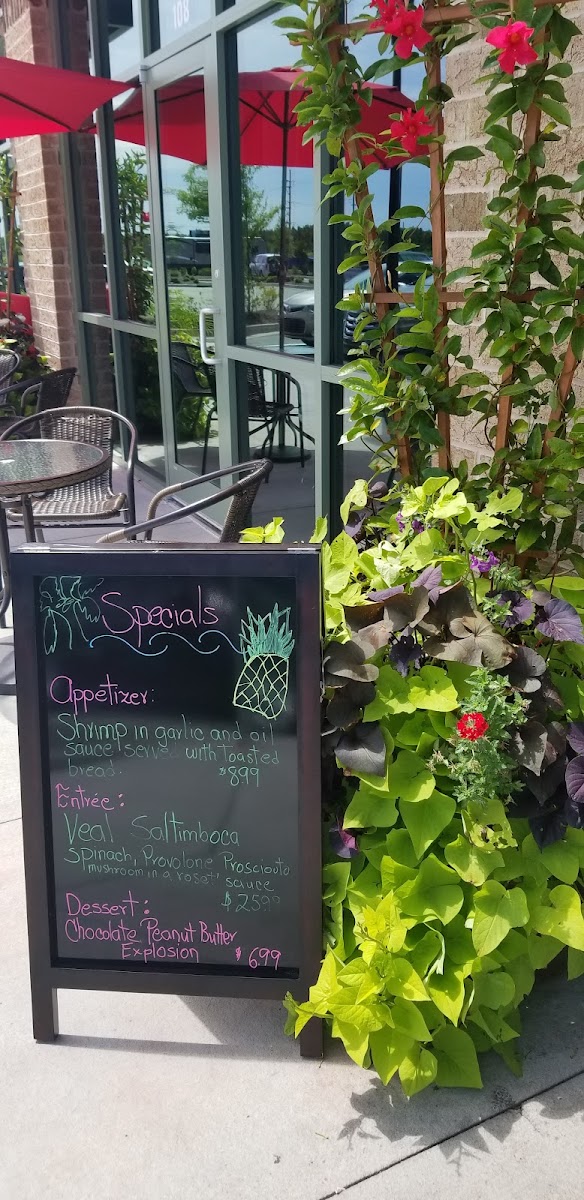 108
Specials
Appetizer:
Shrimp in garlic and oil
sauce served with toasted
bread.
$8.99
Entrée:
Veal Saltimboca
Spinach, Provolone Prosciouto
mushroom in a rose' sauce
$25.99
Dessert:
Chocolate Peanut Butter
Explosion $6.99